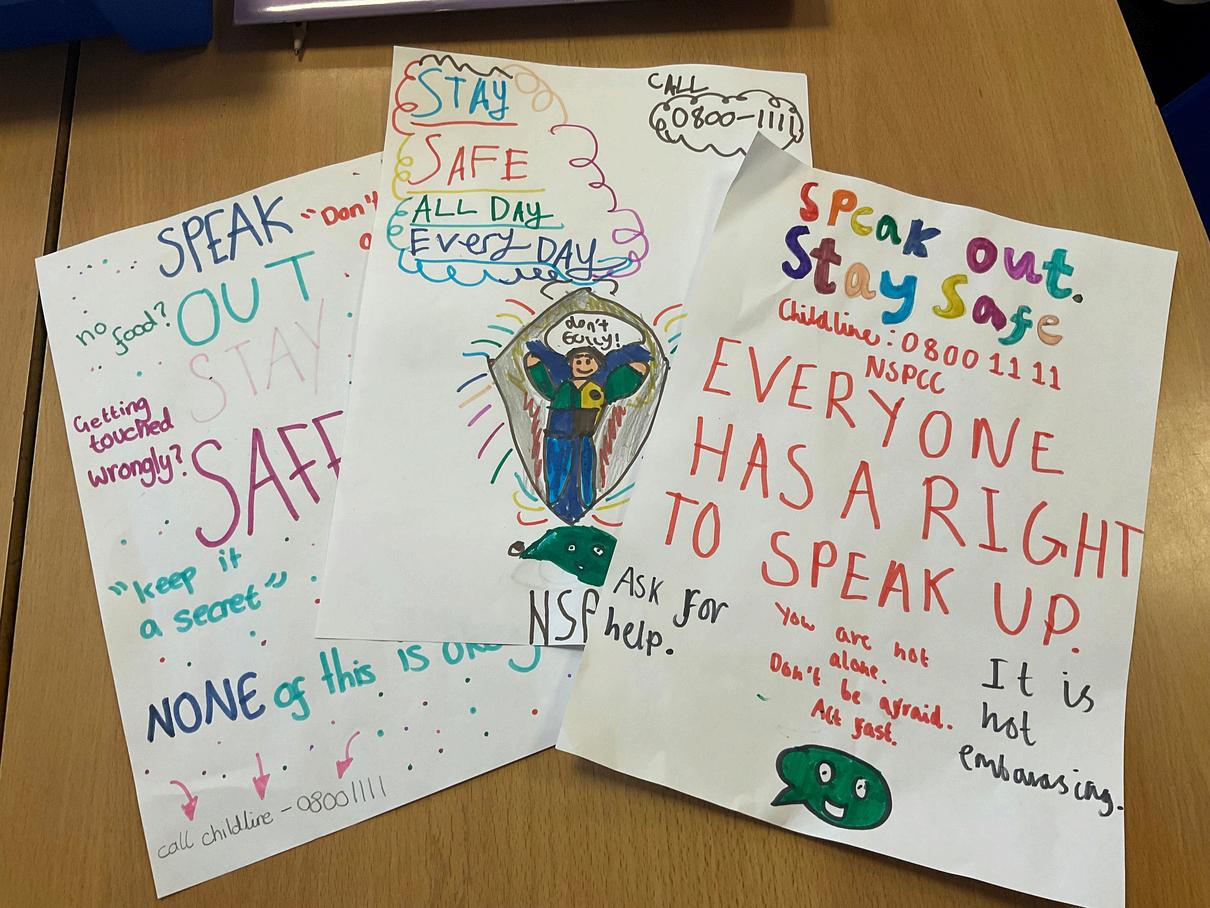 SPEAK
OUT
STAY
SAFE
"Don't
no
food?
Getting
touched
wrongly?
"keep it
a secret"
NONE of this is
call childline - 08001111
STAY
SAFE
ALL DAY
Every DAY
CALL
0800-1111
don't
bully!
Speak out.
Stay Safe
Childline: 0800 11 11
NSPCC
EVERYONE
HAS A RIGHT
TO SPEAK UP.
Ask for
help.
You are not
alone.
Don't be afraid.
Act fast.
It is
not
embarasing.